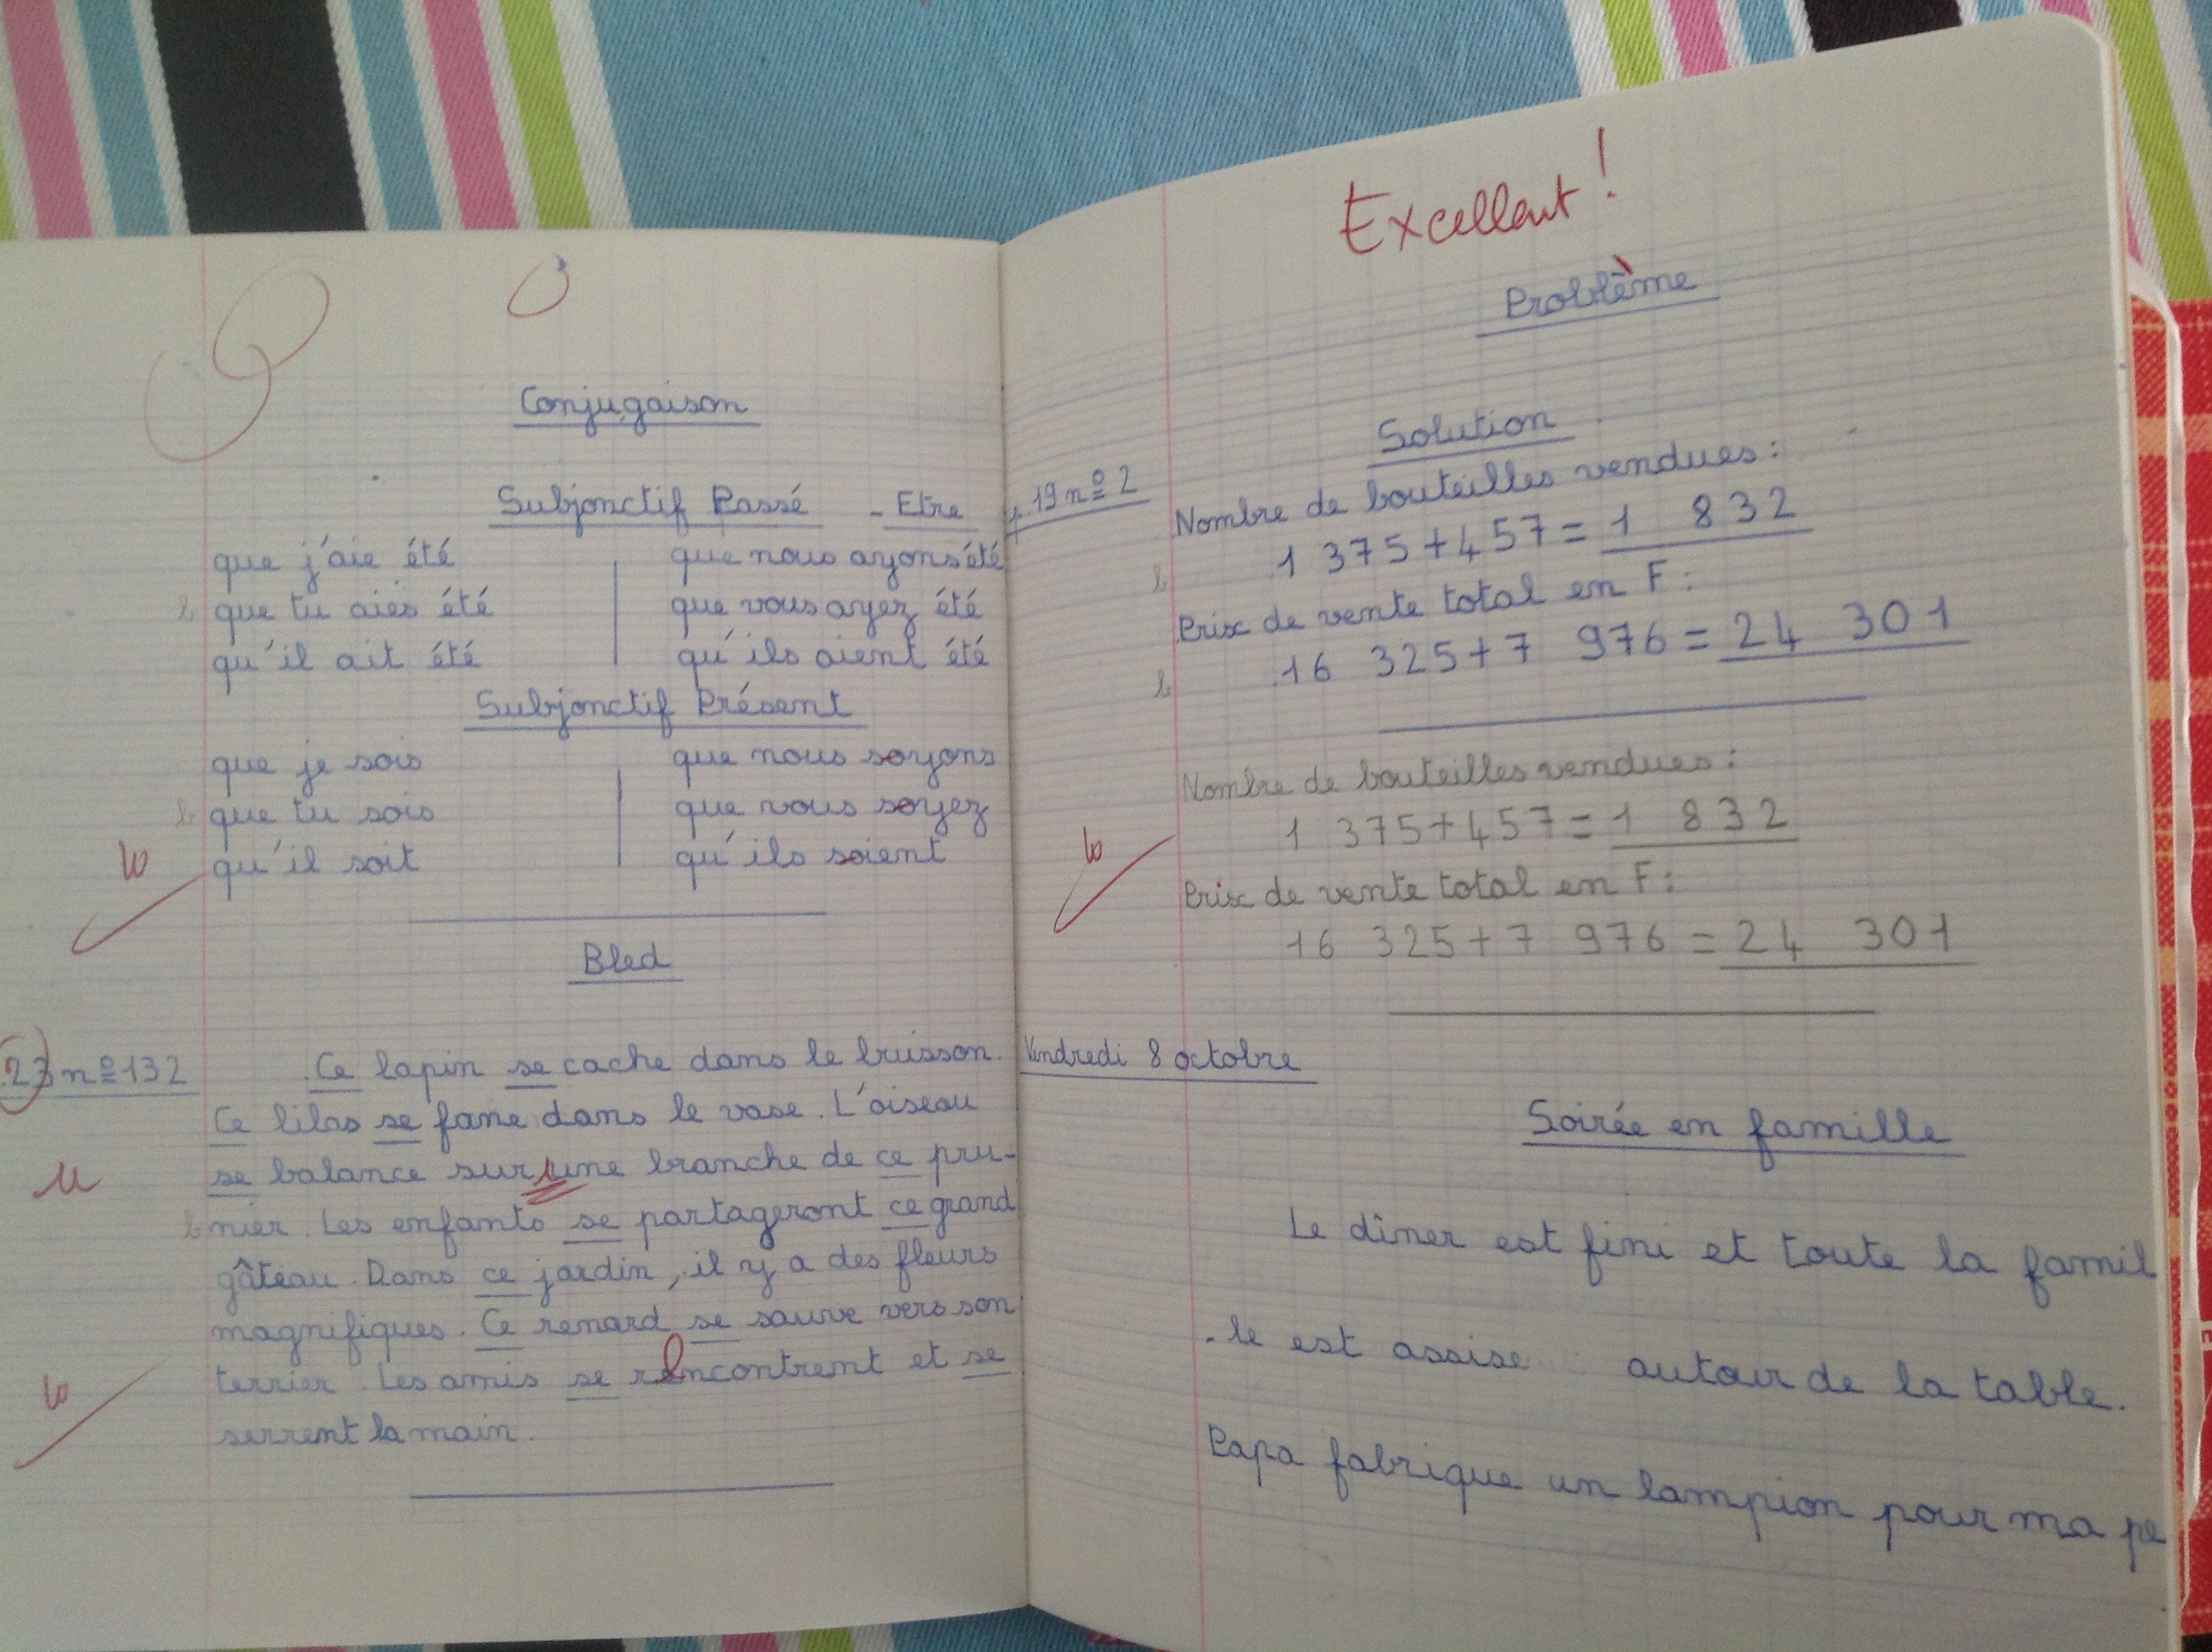 Conjugaison
Subjonctif Passé - Etre
que j'aie été
que nous ayons été
que tu aies été
que vous ayez été
qu'il ait été
qu'ils aient été
Subjonctif Présent
que je sois
que nous soyons
que tu sois
que vous soyez
qu'il soit
qu'ils soient
Bled
23 n° 132
Ce lapin se cache dans le buisson.
Ce lilas se fane dans le vase. L'oiseau
se balance sur une branche de ce pru-
nier. Les enfants se partageront ce grand
gâteau. Dans ce jardin, il y a des fleurs
magnifiques. Ce renard se sauve vers son
terrier. Les amis se rencontrent et se
serrent la main.
Excellent !
Problème
p. 19 n° 2
Solution
Nombre de bouteilles vendues :
1 375 + 457 = 1 832
Prix de vente total en F :
16 325 + 7 976 = 24 301
Nombre de bouteilles vendues :
1 375 + 457 = 1 832
Prix de vente total en F :
16 325 + 7 976 = 24 301
Vendredi 8 octobre
Soirée en famille
Le dîner est fini et toute la famil
-le est assise autour de la table.
Papa fabrique un lampion pour ma pe